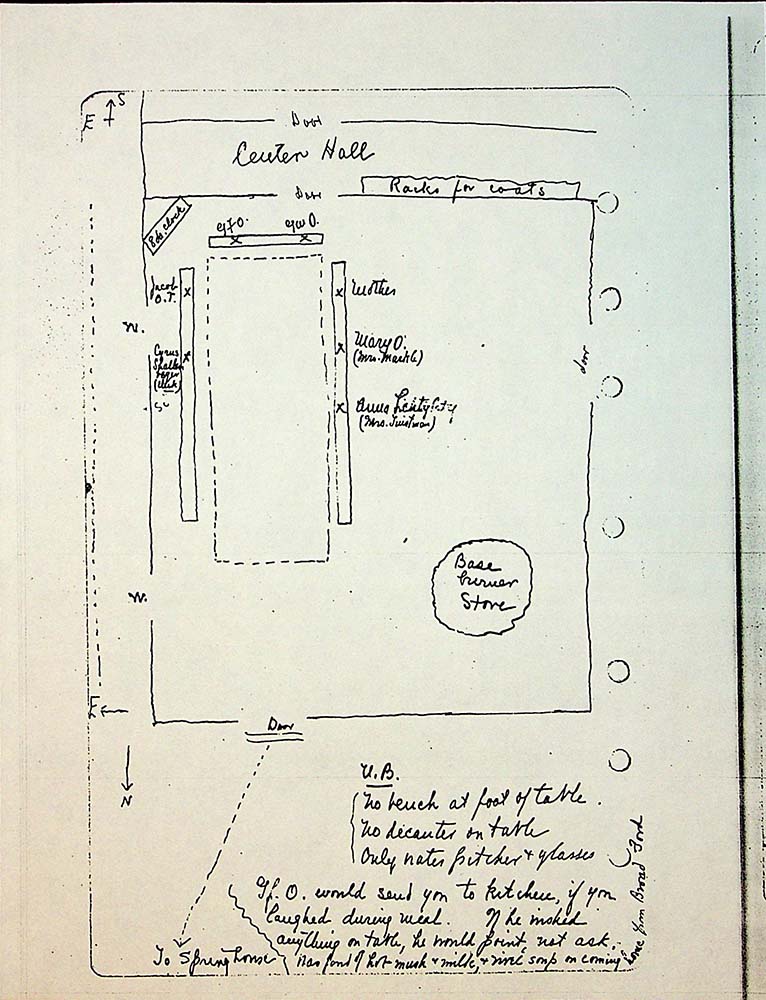 S
E
Door
Center Hall
Door
Racks for coats
8da. clock
gfO.
gwO.
Jacob
O.T.
Mother
W.
Cyrus
Mary O.
(Mrs. Markle)
door
Anna
(Mrs.
Base
burner
Stove
W.
E
Door
N
N.B.
No bench at foot of table.
No decanter on table
Only water pitcher & glasses
Gf. O. would send you to kitchen, if you
laughed during meal. If he wished
anything on table, he would point, not ask.
Was fond of hot mush & milk, & rice soup on coming
home from Broad Ford
To Springhouse